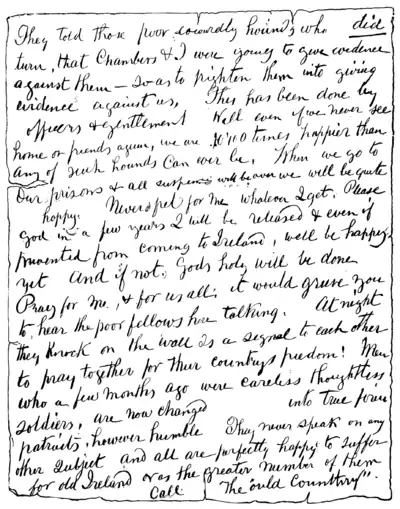 They told those poor cowardly hounds who did
turn, that Chambers & I were going to give evidence
against them — so as to frighten them into giving
evidence against us, This has been done by
officers & gentlement Well even if we never see
home or friends again, we are 10'00 times happier than
any of such hounds can ever be. When we go to
our prisons & all suspense will be over we will be quite
happy. Never fret for me whatever I get. Please
God in a few years I will be released & even if
prevented from coming to Ireland, we'll be happy
yet and if not, Gods holy will be done
Pray for me, & for us all; it would grieve you
to hear the poor fellows here talking. At night
they knock on the wall as a signal to each other
to pray together for their countrys freedom! Men
who a few months ago were careless thoughtless
soldiers, are now changed into true
patriots, however humble They never speak on any
other subject and all are perfectly happy to suffer
for old Ireland or as the greater number of them
call The "ould Counttry".